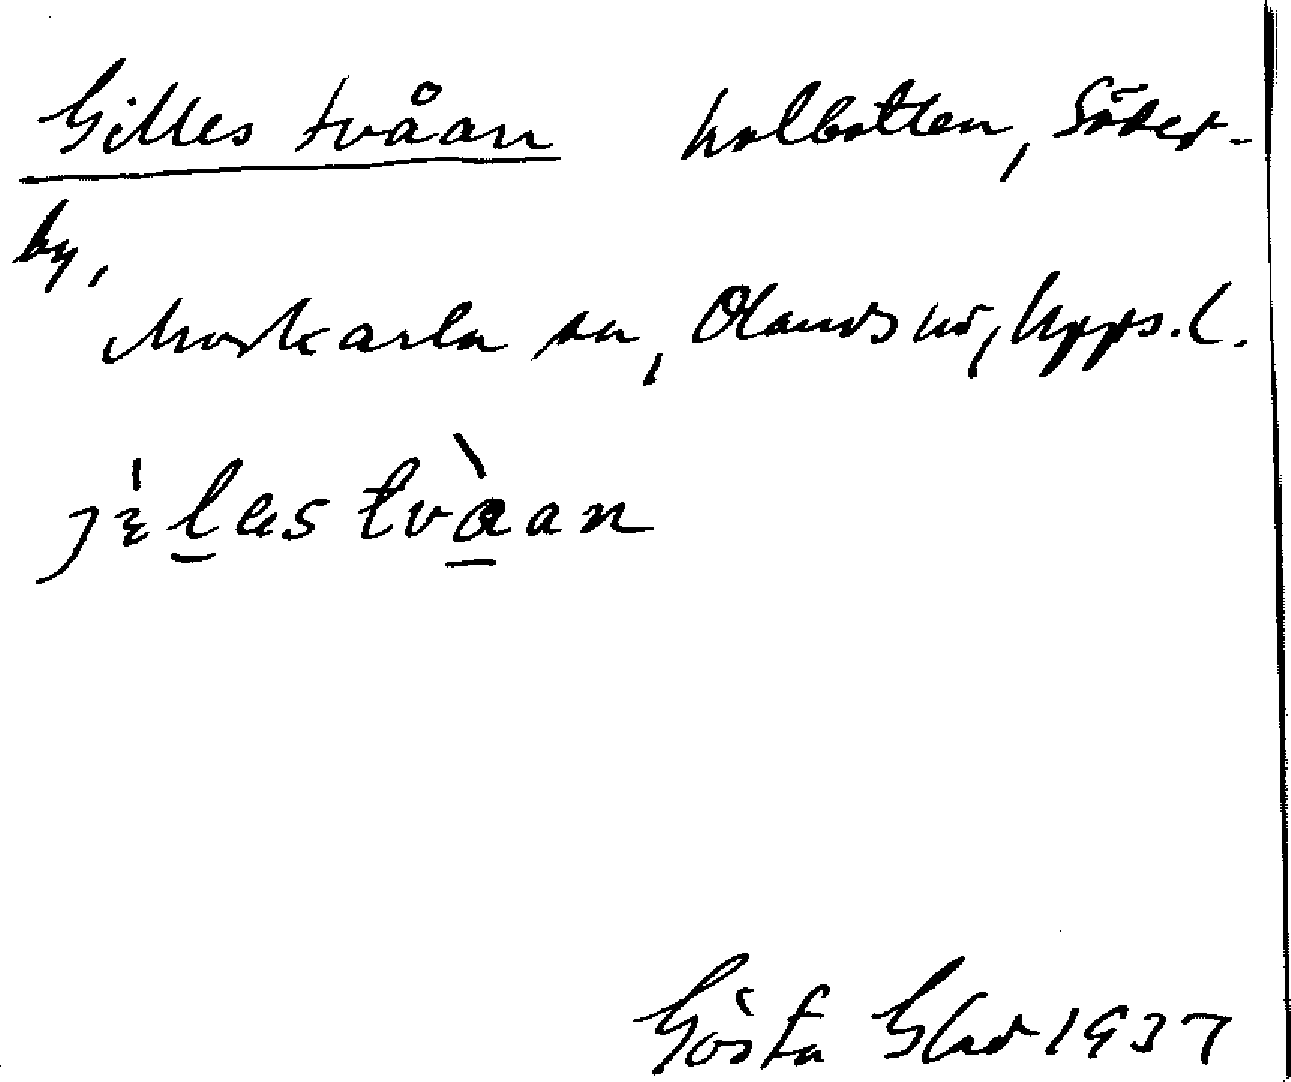 Gilles tvåan kolbotten, Söder-
by,
Morkarla sn, Olands hd, Upps. l.
Gösta Glad 1937